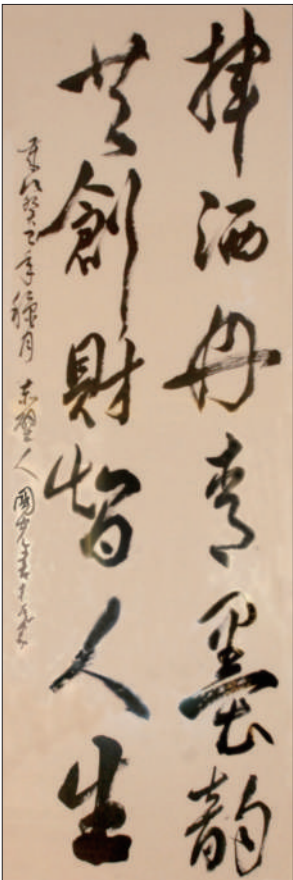 揮洒丹青墨韵
共創財智人生
癸巳年 月 赤壁人國